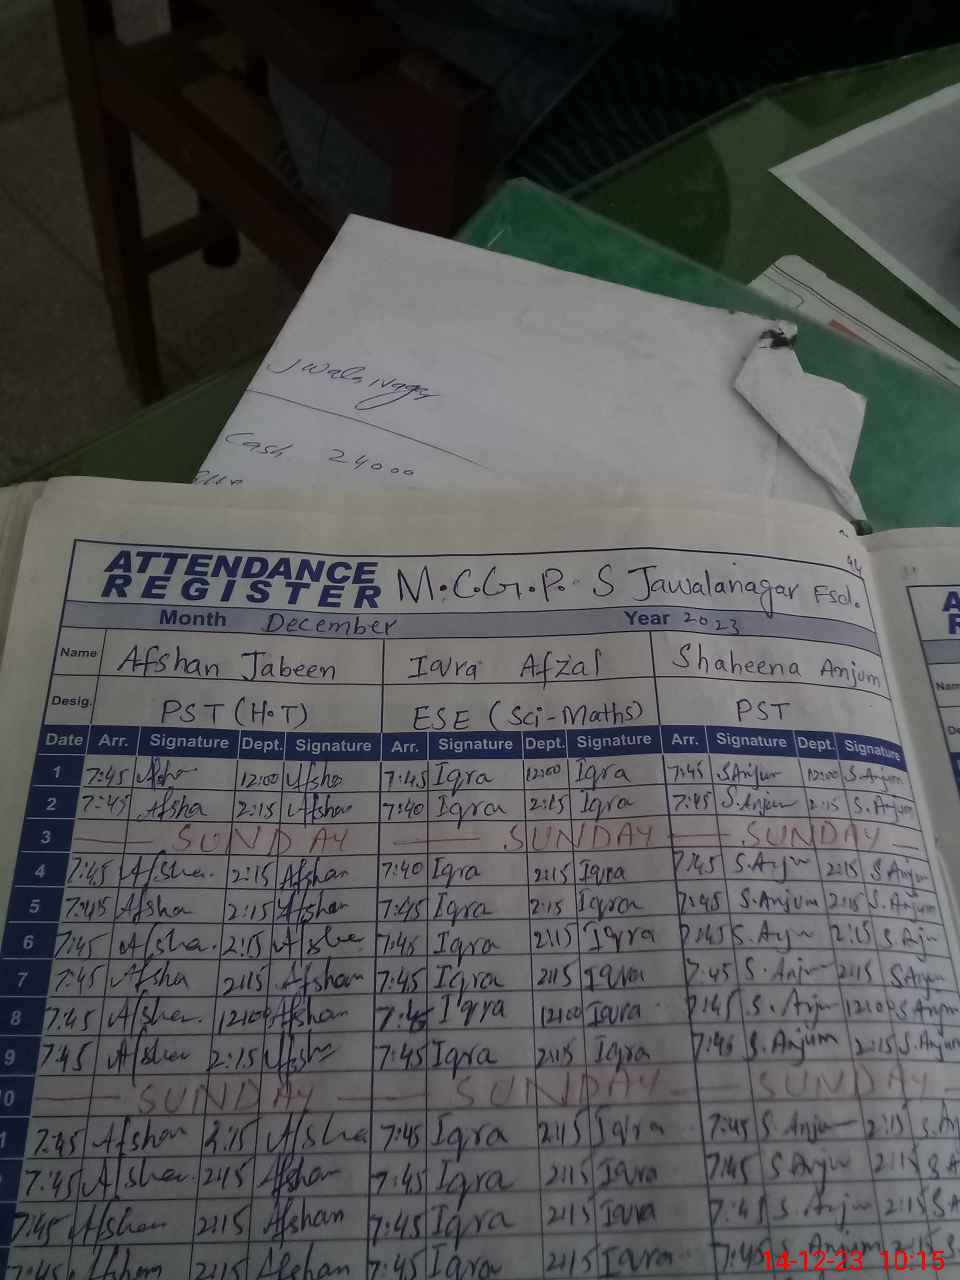 Jwala Nagar
Cash 24000
ATTENDANCE
REGISTER M.C.G.P.S Jawalanagar Fsd.
Month December Year 2023
Name Afshan Jabeen Iqra Afzal Shaheena Anjum
Desig. PST (H.T) ESE (Sci-Maths) PST
Date Arr. Signature Dept. Signature Arr. Signature Dept. Signature Arr. Signature Dept. Signature
1 7:45 Afsha 12:00 Afsha 7:45 Iqra 12:00 Iqra 7:45 S.Anjum 12:00 S.Anjum
2 7:45 Afsha 2:15 Afshan 7:40 Iqra 2:15 Iqra 7:45 S.Anjum 2:15 S.Anjum
3 SUNDAY SUNDAY SUNDAY
4 7:45 Afsha. 2:15 Afshan 7:40 Iqra 2:15 Iqra 7:45 S.Anjum 2:15 S Anjum
5 7:45 Afsha 2:15 Afshan 7:45 Iqra 2:15 Iqra 7:45 S.Anjum 2:15 S.Anjum
6 7:45 Afsha. 2:15 Afsha 7:45 Iqra 2:15 Iqra 7:45 S.Anjum 2:15 S Anjum
7 7:45 Afsha 2:15 Afshan 7:45 Iqra 2:15 Iqra 7:45 S.Anjum 2:15 S Anjum
8 7:45 Afshan. 12:00 Afshan 7:45 Iqra 12:00 Iqra 7:45 S.Anjum 12:00 S Anjum
9 7:45 Afshan 2:15 Afsha 7:45 Iqra 2:15 Iqra 7:45 S.Anjum 2:15 S.Anjum
0 SUNDAY SUNDAY SUNDAY
1 7:45 Afshan 2:15 Afsha 7:45 Iqra 2:15 Iqra 7:45 S.Anjum 2:15 S.An
7:45 Afshan. 2:15 Afshan 7:45 Iqra 2:15 Iqra 7:45 S Anjum 2:15 S A
7:45 Afshan 2:15 Afshan 7:45 Iqra 2:15 Iqra 7:45 S.Anjum 2:15 S A
7:45 Afshan 2:15 Afshan 7:45 Iqra 2:15 Iqra 7:45 S.Anjum 2:15 S.
14-12-23 10:15